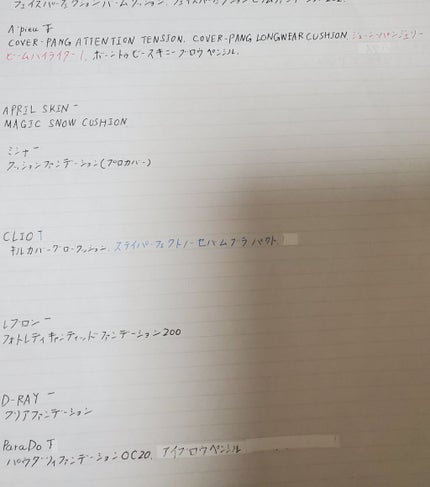 A'pieu 下
COVER-PANG ATTENTION TENSION. COVER-PANG LONGWEAR CUSHION. ジューシーパンジェリー
ビームハイライター1. ボーントゥビースキニーブロウペンシル.
APRIL SKIN ー
MAGIC SNOW CUSHION
ミシャー
クッションファンデーション(プロカバー)
CLIO 下
キルカバーグロークッション. ステイパーフェクトノーセバムブラーパクト
レブロン ー
フォトレディキャンディッドファンデーション200
D-RAY ー
クリアファンデーション
ParaDo 下
パウダリィファンデーションOC20. アイブロウペンシル